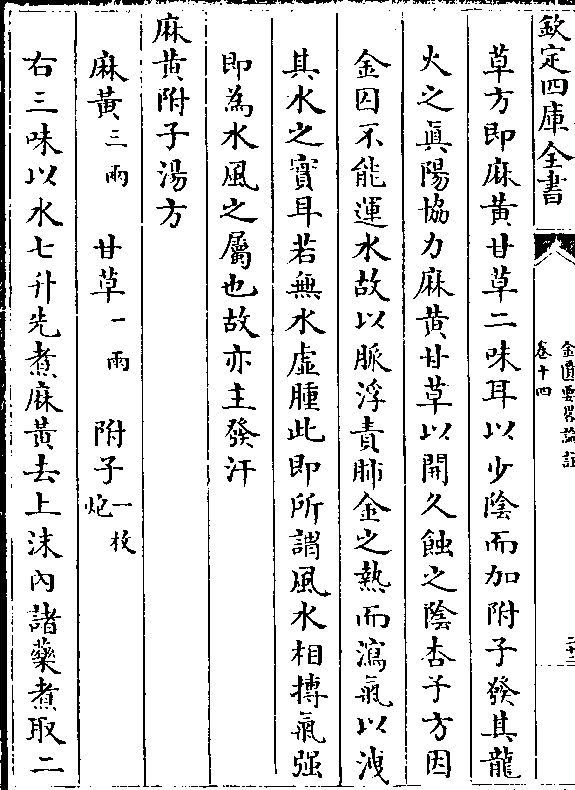 欽定四庫全書
金匱要畧論註
卷十四
二十二
草方即麻黄甘草二味耳以少陰而加附子發其龍
火之真陽協力麻黄甘草以開久蝕之陰杏子方因
金因不能運水故以脈浮責肺金之熱而瀉氣以洩
其水之實耳若無水虛腫此即所謂風水相搏氣强
即為水風之屬也故亦主發汗
麻黄附子湯方
麻黄三兩 甘草一兩 附子一枚炮
右三味以水七升先煮麻黄去上沫內諸藥煮取二